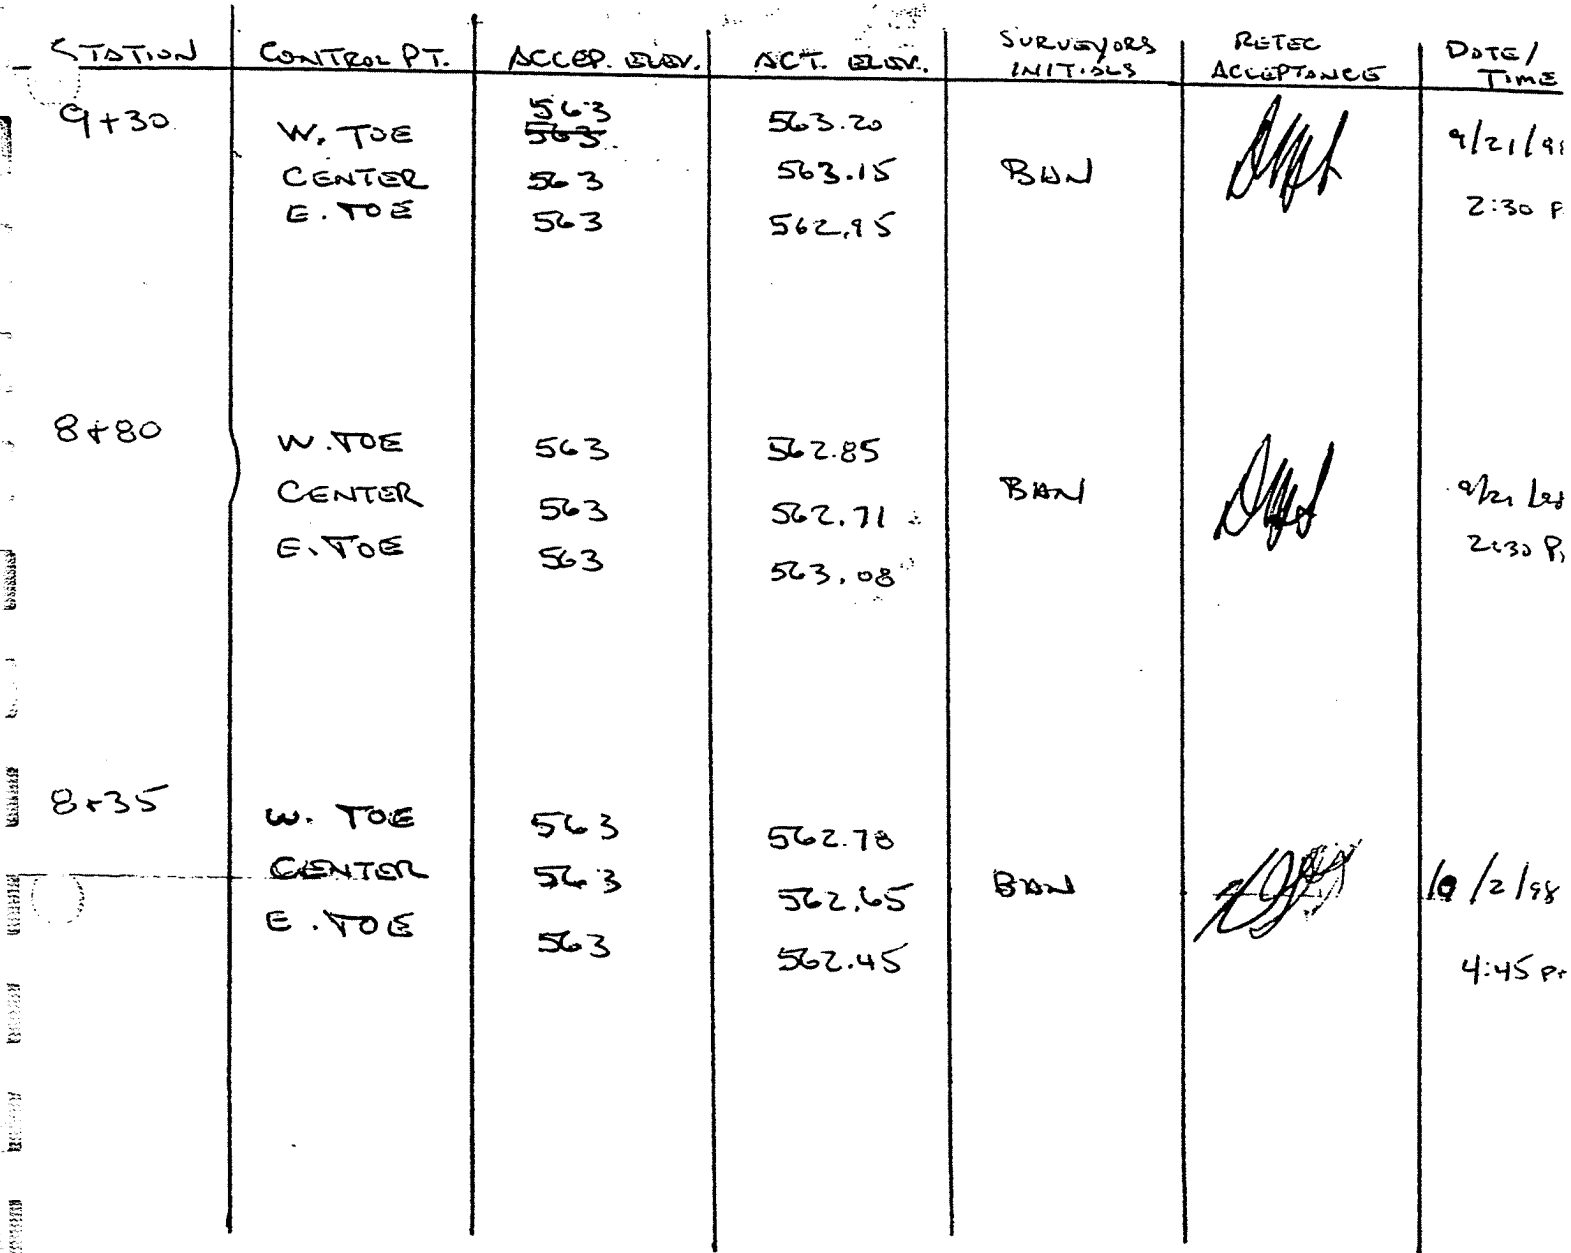 STATION CONTROL PT. ACCEP. ELEV. ACT. ELEV. SURVEYORS INITIALS RETEC ACCEPTANCE DATE/ TIME
9+30 W. TOE 563 563 563.20 9/21/98
CENTER 563 563.15 BAN
E. TOE 563 562.95 2:30 P
8+80 W. TOE 563 562.85
CENTER 563 562.71 BAN 9/21/98
E. TOE 563 563.08 2:30 P
8+35 W. TOE 563 562.78
CENTER 563 562.65 BAN 10/2/98
E. TOE 563 562.45 4:45 P